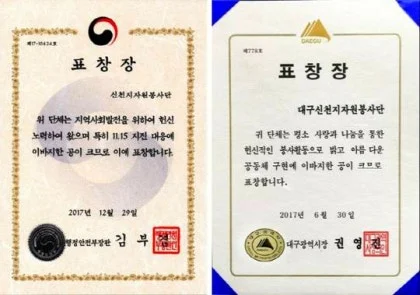 제17-10424호
표 창 장
신천지자원봉사단
위 단체는 지역사회발전을 위하여 헌신
노력하여 왔으며 특히 11.15 지진 대응에
이바지한 공이 크므로 이에 표창합니다.
2017년 12월 29일
행정안전부장관 김 부 겸
DAEGU
제779호
표 창 장
대구신천지자원봉사단
귀 단체는 평소 사랑과 나눔을 통한
헌신적인 봉사활동으로 밝고 아름 다운
공동체 구현에 이바지한 공이 크므로
표창합니다.
2017년 6월 30일
대구광역시장 권 영 진